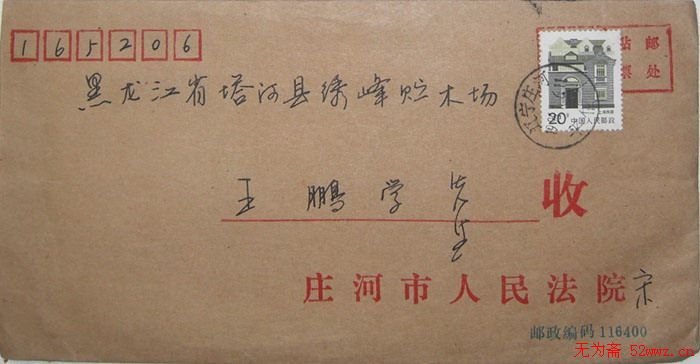 165206
贴邮
票处
黑龙江省塔河县绣峰贮木场
辽宁庄河
20分
中国人民邮政
王鹏学 先生 收
庄河市人民法院宋
邮政编码116400
无为斋 52wwz.cn